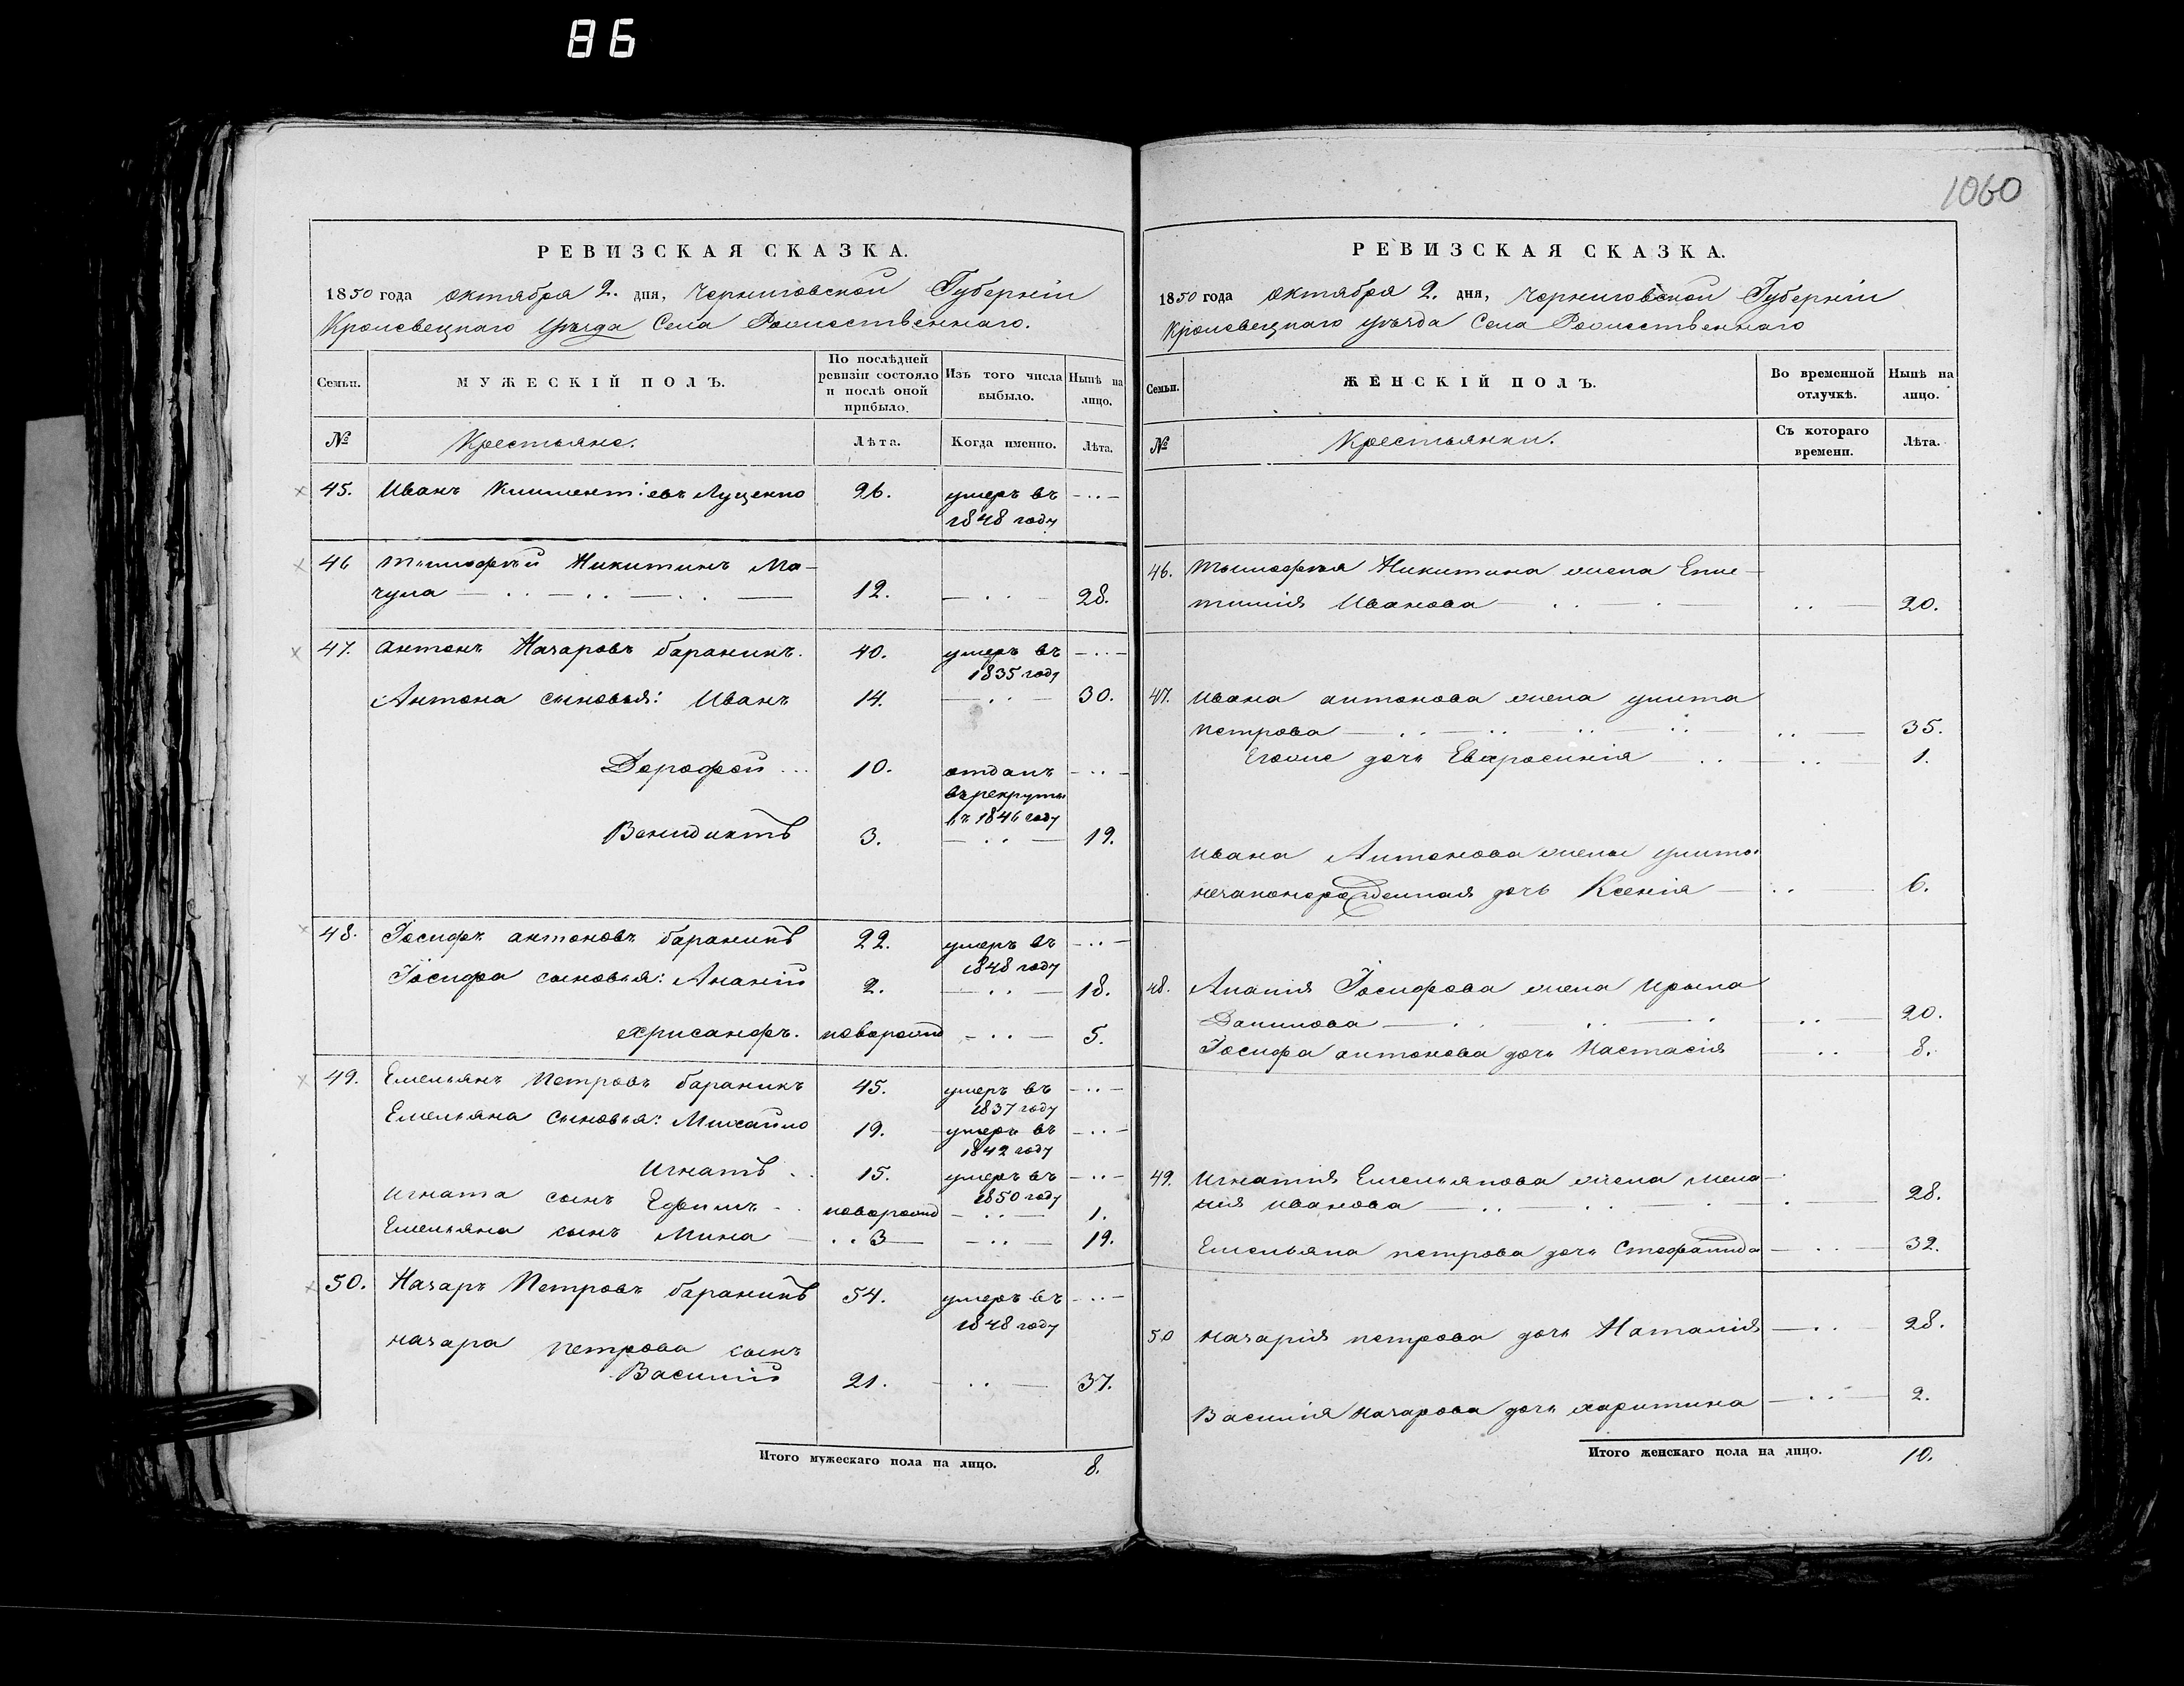 86
1060
РЕВИЗСКАЯ СКАЗКА.
1850 года октября 2. дня, Черниговской Губерніи
Кролевецкаго уѣзда Села Рожественнаго.
Семьи.
МУЖЕСКІЙ ПОЛЪ.
По послѣдней ревизіи состояло и послѣ оной прибыло.
Изъ того числа выбыло.
Нынѣ на лицо.
№
Крестьяне.
Лѣта.
Когда именно.
Лѣта.
45. Иванъ Климентіевъ Луценко 26. умеръ въ
1848 году
46 Тимофѣй Никитинъ Ма-
чула 12. 28.
47. Антонъ Назаровъ бараникъ. 40. умеръ въ
1835 году
Антона сыновья: Иванъ 14. 30.
Дорофей 10. отданъ
въ рекруты
въ 1846 году
Венидиктъ 3. 19.
48. Іосифъ антоновъ бараникъ 22. умеръ въ
1848 году
Іосифа сыновья: Ананій 2. 18.
Хрисанфъ. новорожд 5.
49. Емельянъ Петровъ бараникъ 45. умеръ въ
1837 году
Емельяна сыновья: Михайло 19. умеръ въ
1842 году
Игнатъ 15. умеръ въ
1850 году
Игната сынъ Ефимъ новорожд 1.
Емельяна сынъ Мина 3 19.
50. Назаръ Петровъ бараникъ 54. умеръ въ
1848 году
назара петрова сынъ
Василій 21. 37.
Итого мужескаго пола на лицо. 8.
РЕВИЗСКАЯ СКАЗКА.
1850 года октября 2. дня, Черниговской Губерніи
Кролевецкаго уѣзда Села Рожественнаго
Семьи.
ЖЕНСКІЙ ПОЛЪ.
Во временной отлучкѣ.
Нынѣ на лицо.
№
Крестьянки.
Съ котораго времени.
Лѣта.
46. Тимофѣя Никитина жена Епис-
тимія Иванова 20.
47. Ивана антонова жена улита
петрова 35.
Егоже дочь Евфросинія 1.
Ивана Антонова жены улиты
незаконорожденная дочь Ксенія 6.
48. Ананія Іосифова жена Ирына
Данилова 20.
Іосифа антонова дочь Настасія 8.
49. Игнатія Емельянова жена Мела-
нія иванова 28.
Емельяна петрова дочь Стефанида 32.
50 назарія петрова дочь Наталія 28.
Василія назарова дочь харитина 2.
Итого женскаго пола на лицо. 10.